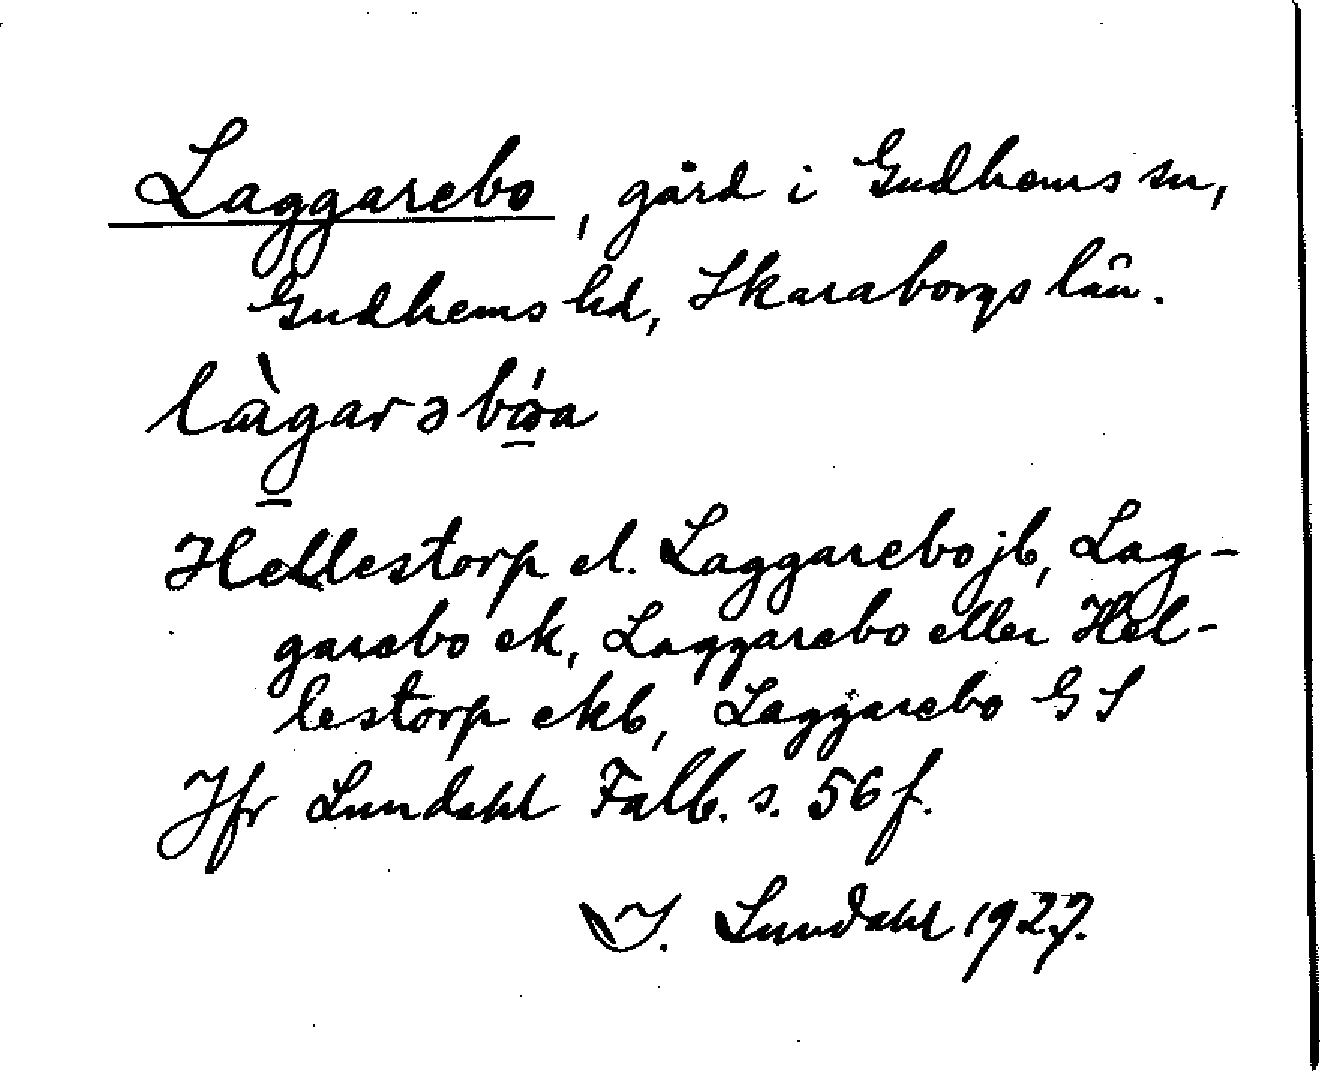 Laggarebo, gård i Gudhems sn,
Gudhems hd, Skaraborgs län.
Hellestorp el. Laggarebo jb, Lag-
garebo ek, Laggarebo eller Hel-
lestorp ekb, Laggarebo GS
Jfr Lundahl Falb. s. 56 f.
I. Lundahl 1927.